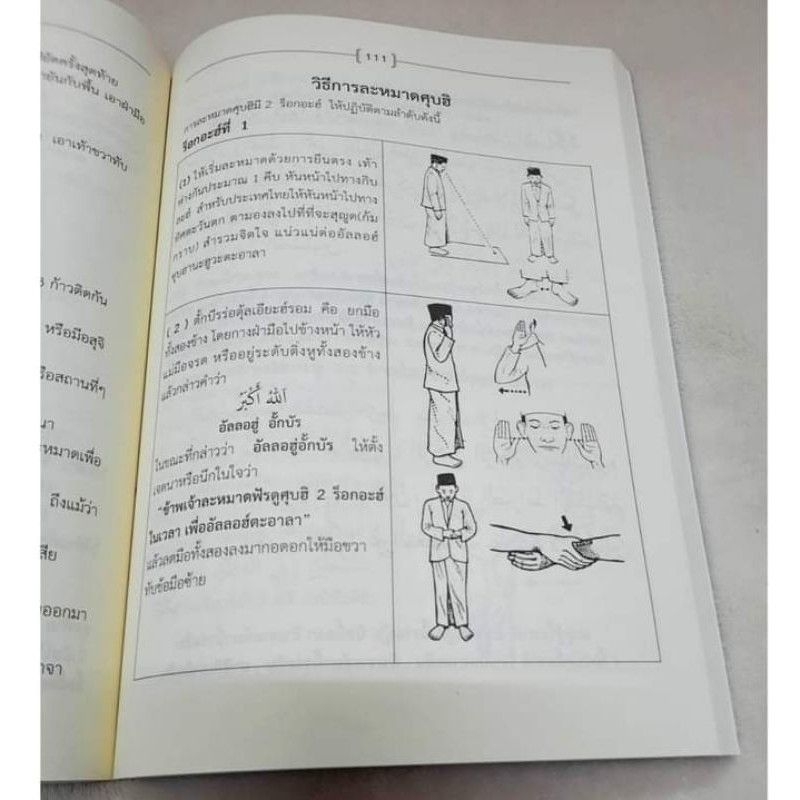 ก้าวติดกัน
หรือมือสุจิ
ถึงแม้ว่า
เอาเท้าขวาทับ
111
วิธีการละหมาดศุบฮิ
การละหมาดศุบฮิมี 2 ร็อกอะฮ์ ให้ปฏิบัติตามลำดับดังนี้
ร็อกอะฮ์ที่ 1
(1) ให้เริ่มละหมาดด้วยการยืนตรง เท้า
ห่างกันประมาณ 1 คืบ หันหน้าไปทางกิบ
ละฮ์ สำหรับประเทศไทยให้หันหน้าไปทาง
ทิศตะวันตก ตามองลงไปที่ที่จะสุญูด(ก้ม
กราบ) สำรวมจิตใจ แน่วแน่ต่ออัลลอฮ์
ซุบฮานะฮูวะตะอาลา
( 2 ) ตั๊กบีรร่อตุ้ลเอียะฮ์รอม คือ ยกมือ
ทั้งสองข้าง โดยกางฝ่ามือไปข้างหน้า ให้หัว
แม่มือจรด หรืออยู่ระดับติ่งหูทั้งสองข้าง
แล้วกล่าวคำว่า
اَللهُ أَكْبَرُ
อัลลอฮู่ อั๊กบัร
ในขณะที่กล่าวว่า อัลลอฮู่อั๊กบัร ให้ตั้ง
เจตนาหรือนึกในใจว่า
"ข้าพเจ้าละหมาดฟัรดูศุบฮิ 2 ร็อกอะฮ์
ในเวลา เพื่ออัลลอฮ์ตะอาลา"
แล้วลดมือทั้งสองลงมากอดอกให้มือขวา
ทับข้อมือซ้าย